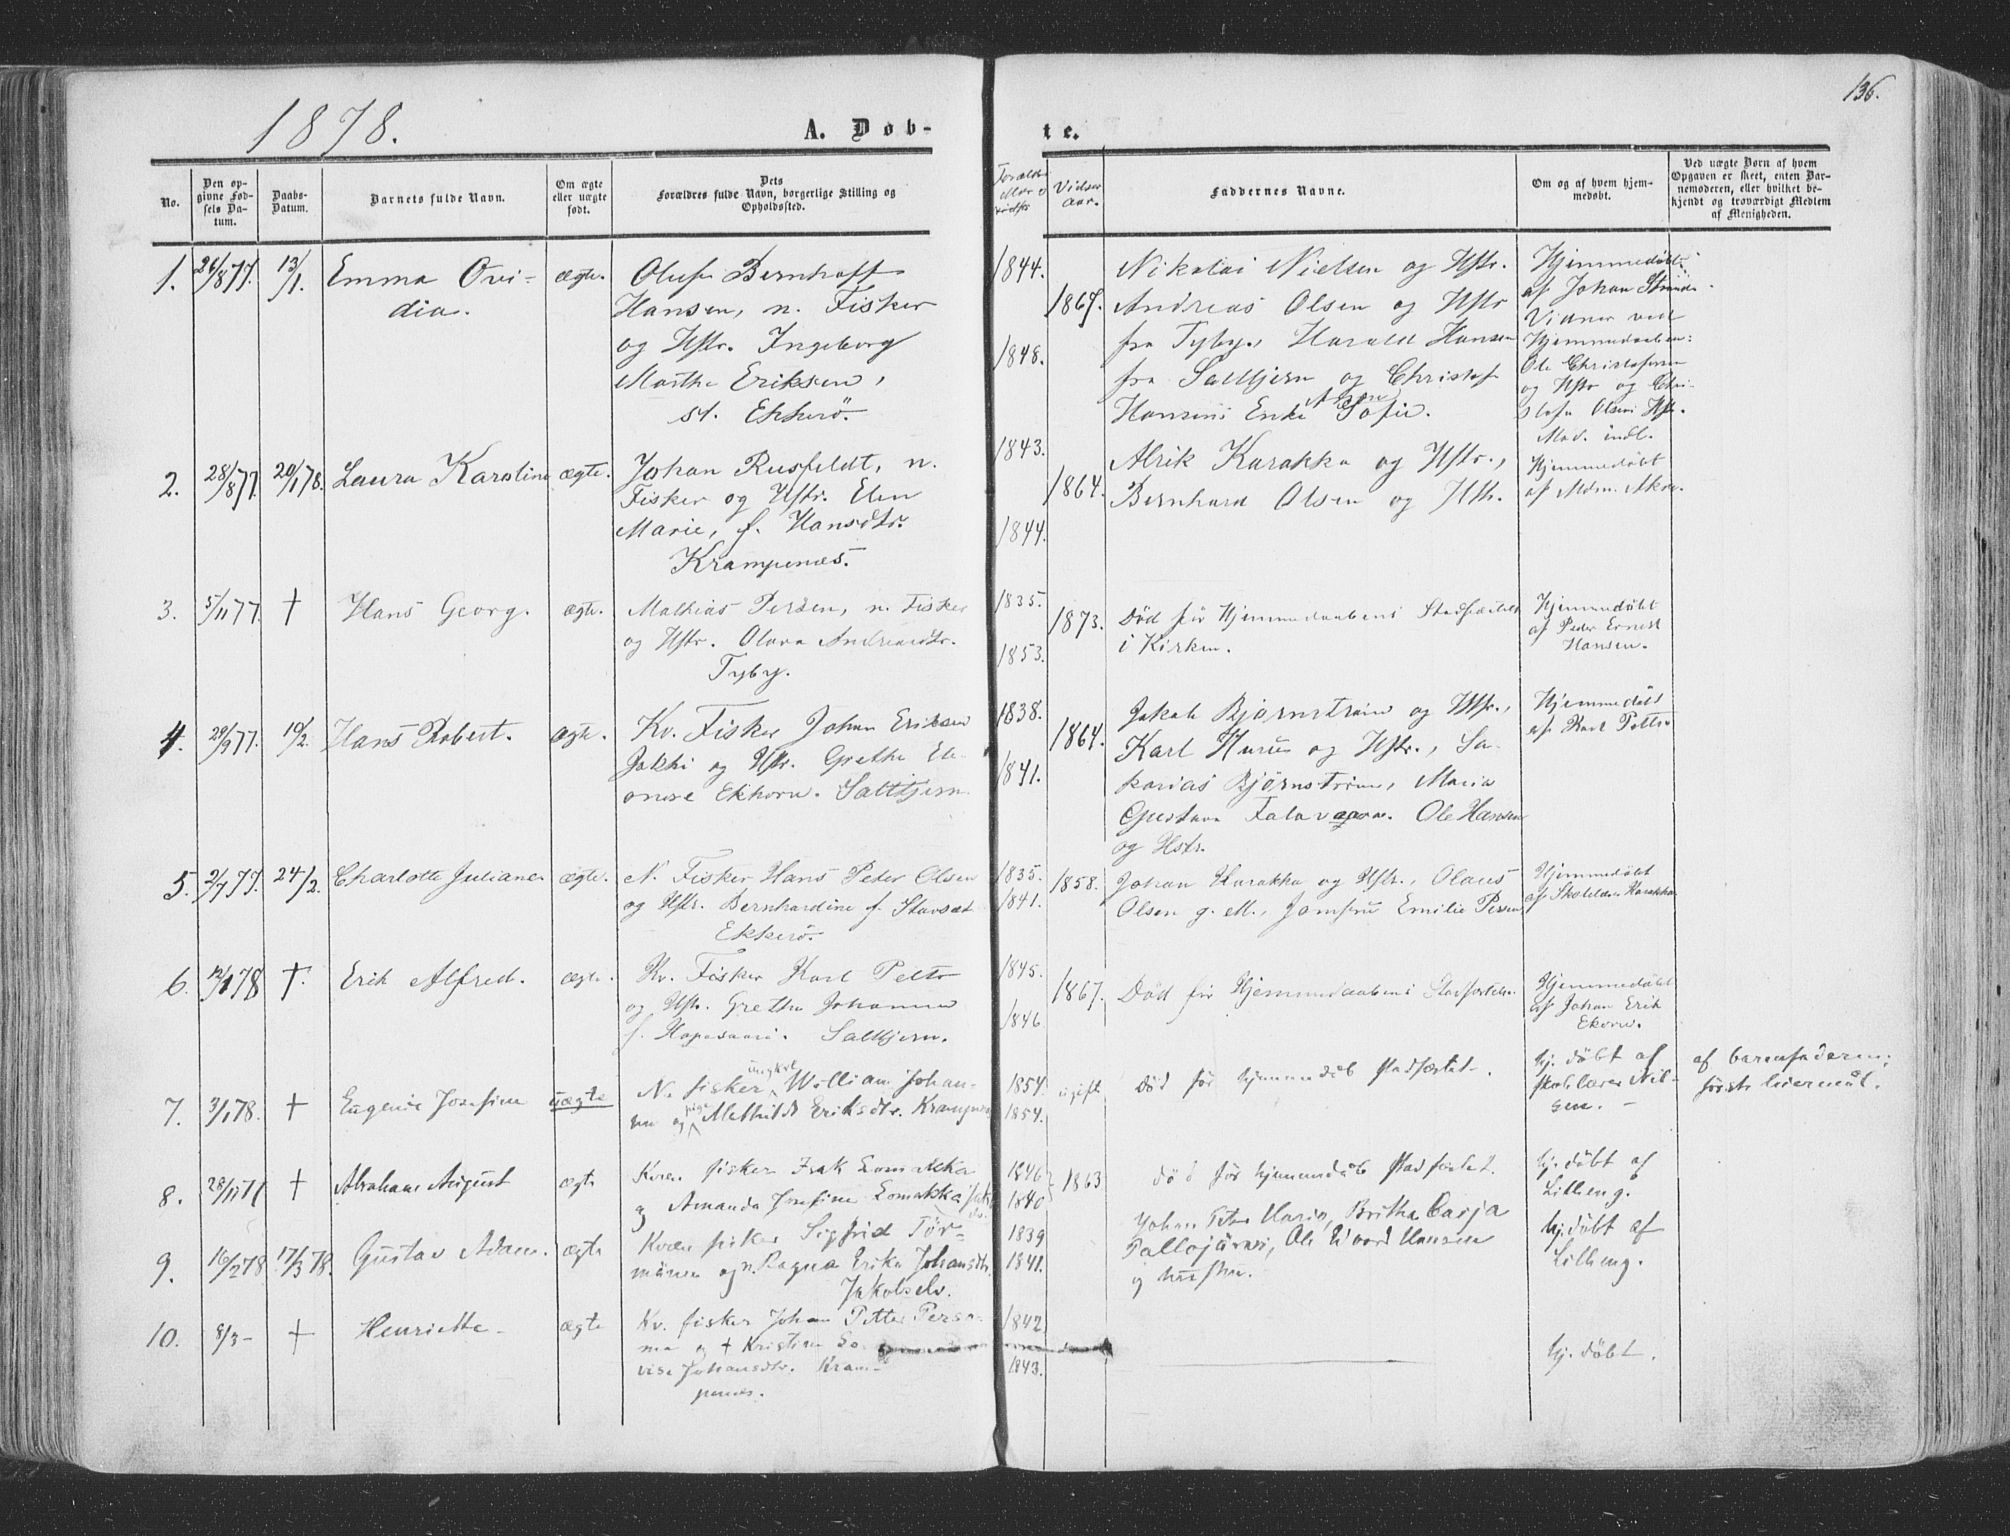 136.
1878.
A. Døb-
te.
No.
Den op-
givne Fød-
sels Da-
tum.
Daabs-
Datum.
Barnets fulde Navn.
Om ægte
eller uægte
født.
Dets
Forældres fulde Navn, borgerlige Stilling og
Opholdssted.
Vielses
aar.
Faddernes Navne.
Om og af hvem hjem-
medøbt.
Ved uægte Børn af hvem
Opgaven er skeet, enten Bar-
nemoderen, eller hvilket be-
kjendt og troværdigt Medlem
af Menigheden.
1. 24/8 77. 13/1. Emma Ovi-
dia.
ægte.
Oluf Berntoft
Hansen, n. Fisker
og Hstr. Ingeborg
Marthe Eriksen,
st. Ekkerö.
1844.
1848.
1867.
Nikolai Nielsen og Hstr.
Andreas Olsen og Hstr
fra Tyby, Harald Hansen
fra Saltjern og Christof
Hansens Enke Sofie.
Hjemmedöbt
af Johan
Vidner ved
Hjemmedaaben:
Ole Christofersen
og Hstr og Chri-
stofer Olsens Hstr.
Mod. indl.
2. 28/8 77. 20/1 78. Laura Karoline ægte.
Johan Rusfeldt, n.
Fisker og Hstr. Elen
Marie, f. Hansdtr.
Krampenæs.
1843.
1844.
1864.
Alrik Karakka og Hstr.,
Bernhard Olsen og Hstr.
Hjemmedöbt
af Mdm.
3. 5/11 77. † Hans Georg. ægte.
Mathias Persen, n. Fisker
og Hstr. Olava Andreasdtr.
Tyby.
1835.
1853.
1873.
Död för Hjemmedaabens Stadfæstelse
i Kirken.
Hjemmedöbt
af Peder Ernest
Hansen.
4. 29/9 77. 10/2. Hans Robert. ægte.
Kv. Fisker Johan Eriksen
Jakki og Hstr. Grethe Ele-
onore Ekhorn. Saltjern
1838.
1841.
1864.
Jakob Björnström og Hstr.,
Karl Hurus og Hstr., Sa-
karias Björnström, Maria
Gustava. Ole Hansen
og Hstr.
Hjemmedöbt
af Karl Petter
5. 2/7 77. 24/2. Charlotte Juliane. ægte.
N. Fisker Hans Peter Olsen
og Hstr. Bernhardine f. Stavsæt
Ekkerö.
1835.
1841.
1858.
Johan Karakka og Hstr., Olaus
Olsen g. M., Jomfru Emilie Persen
Hjemmedöbt
af Karakka
6. 12/1 78 †. Erik Alfred. ægte.
Kv. Fisker Karl Petter
og Hstr. Grethe Johanna
f. Saltjern.
1845.
1846
1867.
Död för Hjemmedaabens Stadfæstelse
Hjemmedöbt
af Johan Erik
Ekorn.
7. 3/1 78. † Eugenie Josefine uægte
N. fisker ungkrl William Johan-
og pige Mathilde Eriksdtr. Krampenæs
1854.
1854.
ugift
Död för hjemmedåb stadfæstet.
hj. döbt af
skolelærer Nil-
sen.
af barnefaderen.
første leiermål.
8. 28/11 77 † Abraham August ægte
Kvæn fisker Isak Lomakka
og Amanda Josefine Lomakka
1846
1840
1863
död för hjemmedåb stadfæstet.
hj. döbt af
Lilleng.
9. 16/2 78 17/3 78. Gustav Adam. ægte
Kvæn fisker Sigfrid Tör-
mänen og Ragna Erika Johansdtr.
Jakobselv.
1839
1841.
Johan Peter, Britha Casja
Pallojärvi, Ole Edvard Hansen
og hustru.
hj. döbt af
Lilleng.
10. 8/3 - † Henriette - ægte
Kv. fisker Johan Petter Pers-
ma og † Kristine Lo-
vise Johansdtr. Kram-
penæs.
1842
1843.
hj. döbt.